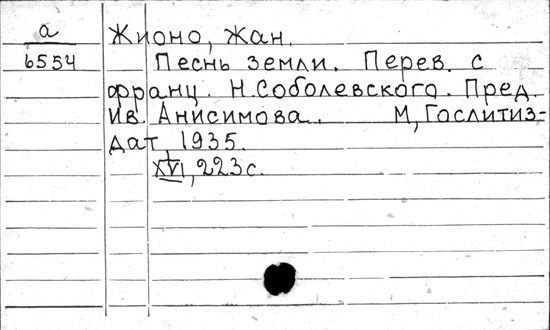 а
6554
Жионо, Жан.
Песнь земли. Перев. с
франц. Н. Соболевского. Пред.
Ив. Анисимова. М, Гослитиз-
дат, 1935.
XVI, 223с.